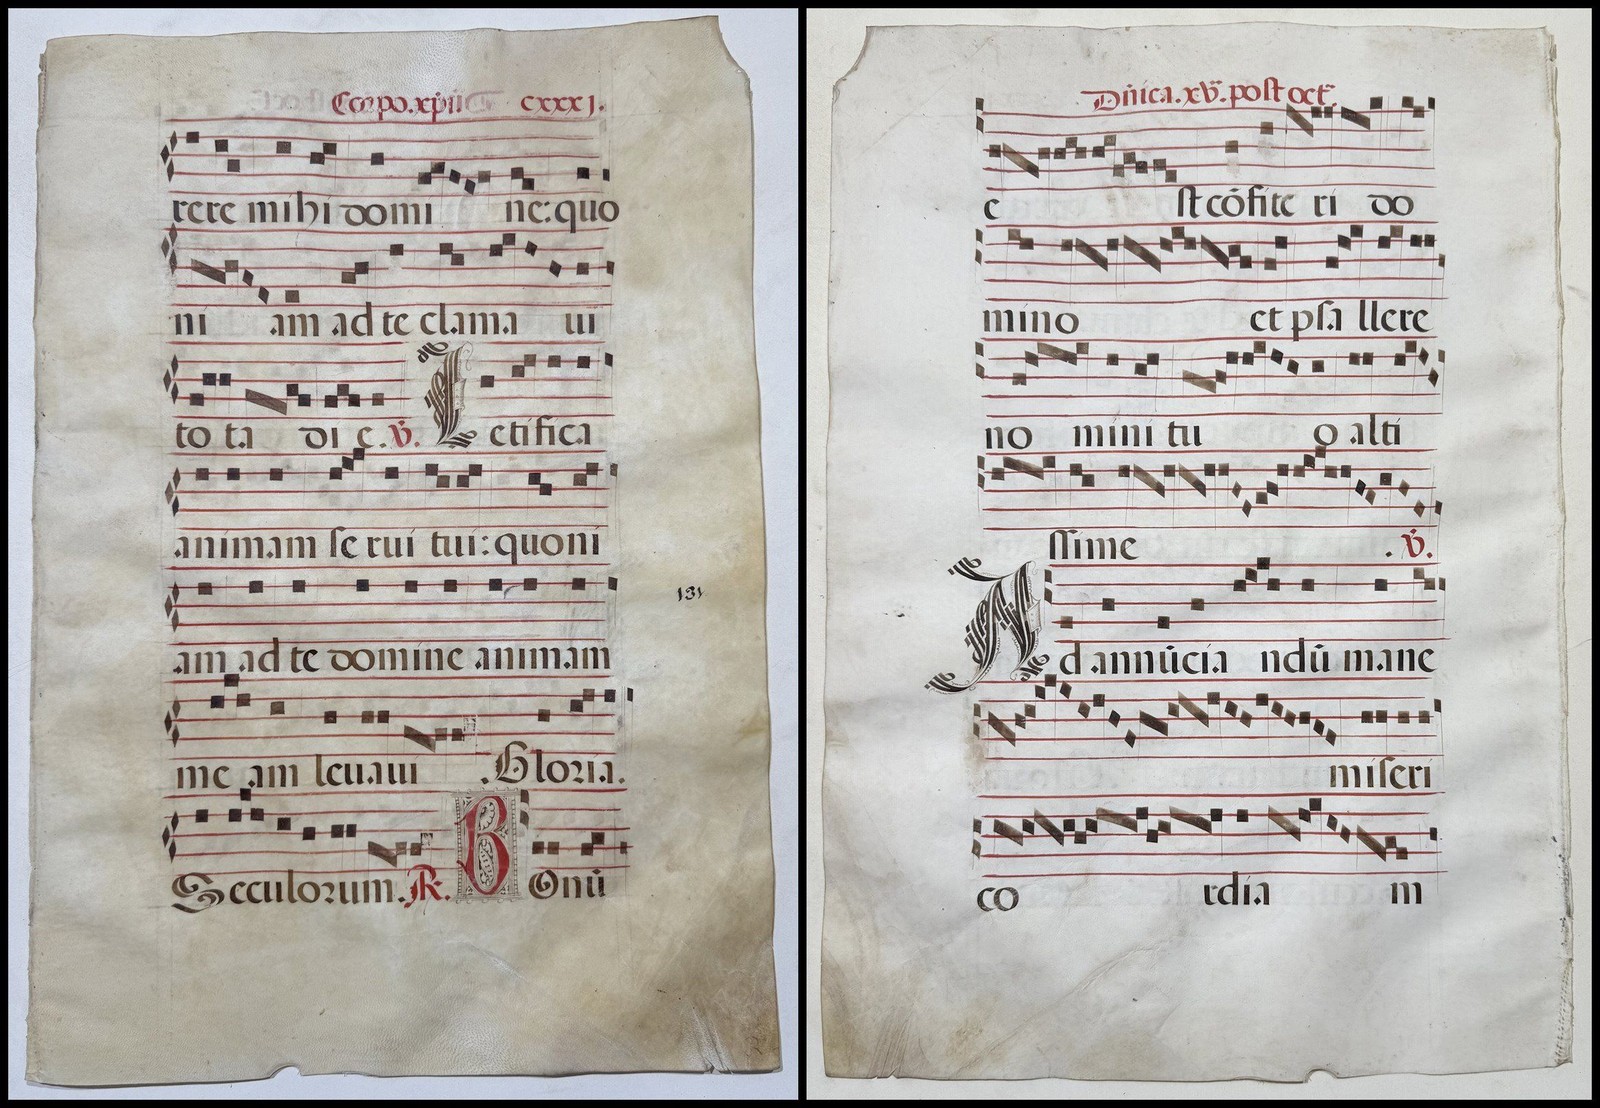 Corpo.xp̄ii cxxxj.
rere mihi domi ne: quo
ni am ad te clama ui
to ta di e. V̄. L etifica
animam serui tui: quoni
am ad te domine animam
131
me am leuaui .Gloria.
Seculorum. R. B Onū
Dn̄ica. xv̄. post oct̄.
e st cōfite ri do
mino et psa llere
no mini tu o alti
ssime . V̄.
A d annūcia ndū mane
miseri
co rdia m